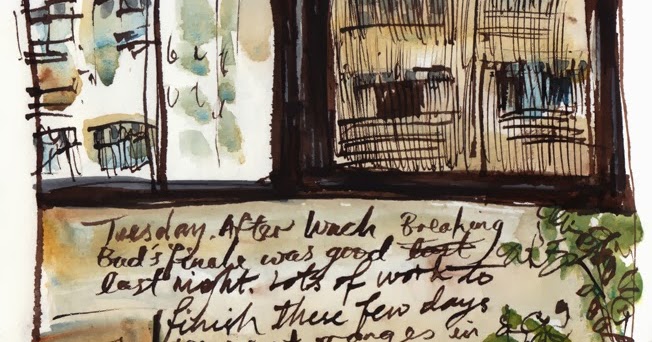 Tuesday. After lunch Breaking
Bad's finale was good
last night. Lots of work to
finish these few days
oranges in